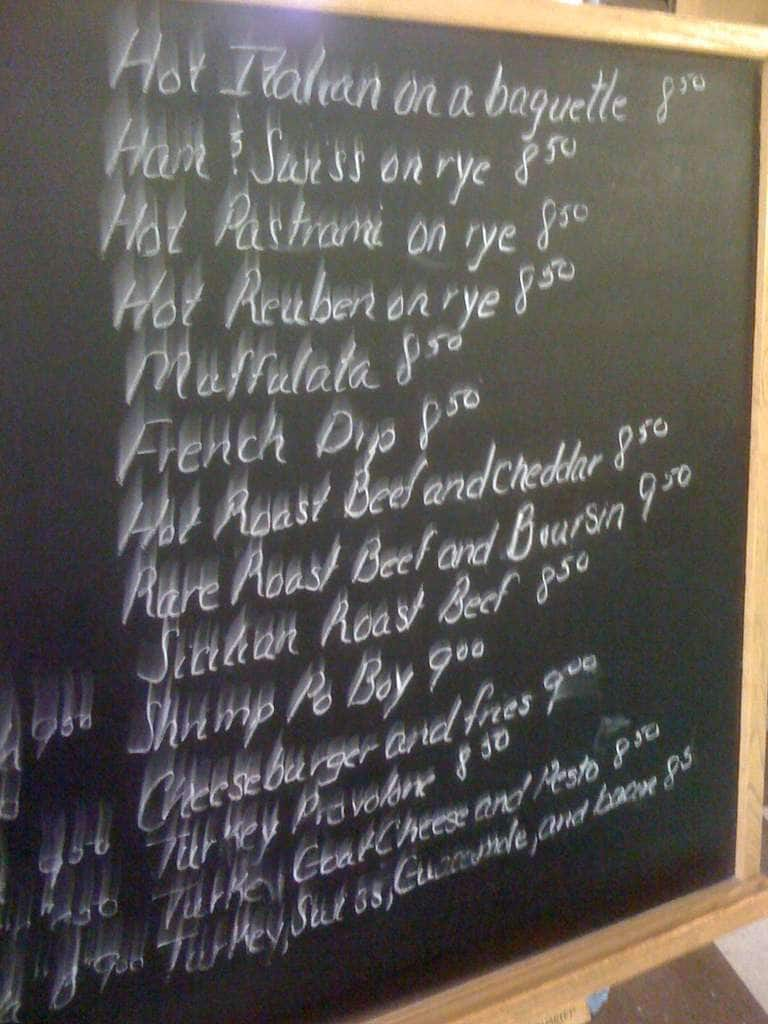 Hot Italian on a baguette 8 50
Ham & Swiss on rye 8 50
Hot Pastrami on rye 8 50
Hot Reuben on rye 8 50
Muffulata 8 50
French Dip 8 50
Hot Roast Beef and cheddar 8 50
Rare Roast Beef and Boursin 9 50
Sicilian Roast Beef 8 50
Shrimp Po Boy 9 00
Cheeseburger and fries 9 00
Turkey Provolone 8 50
Turkey, Goat Cheese and Pesto 8 50
Turkey, Swiss, Guacamole, and bacon 8 5
9 50
9 50
9 00